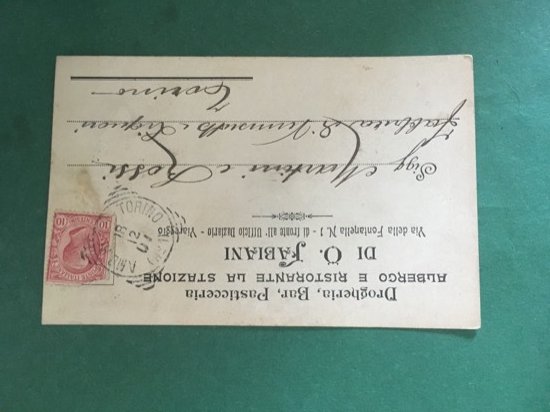 Drogheria, Bar, Pasticceria
ALBERGO E RISTORANTE LA STAZIONE
DI O. FABIANI
Via della Fontanella N. 1 - di fronte all' Ufficio Daziario - Viareggio
Sigg. Martini e Rossi
Fabbrica di Vermouth e Liquori
Torino
TORINO
18
12
10
10